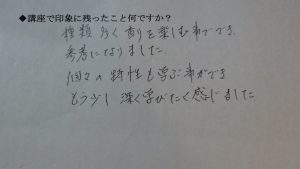 ◆講座で印象に残ったこと何ですか？
種類多く香りを楽しむ事ができ
参考になりました。
個々の特性も学ぶ事ができ
もう少し深く学びたく感じました